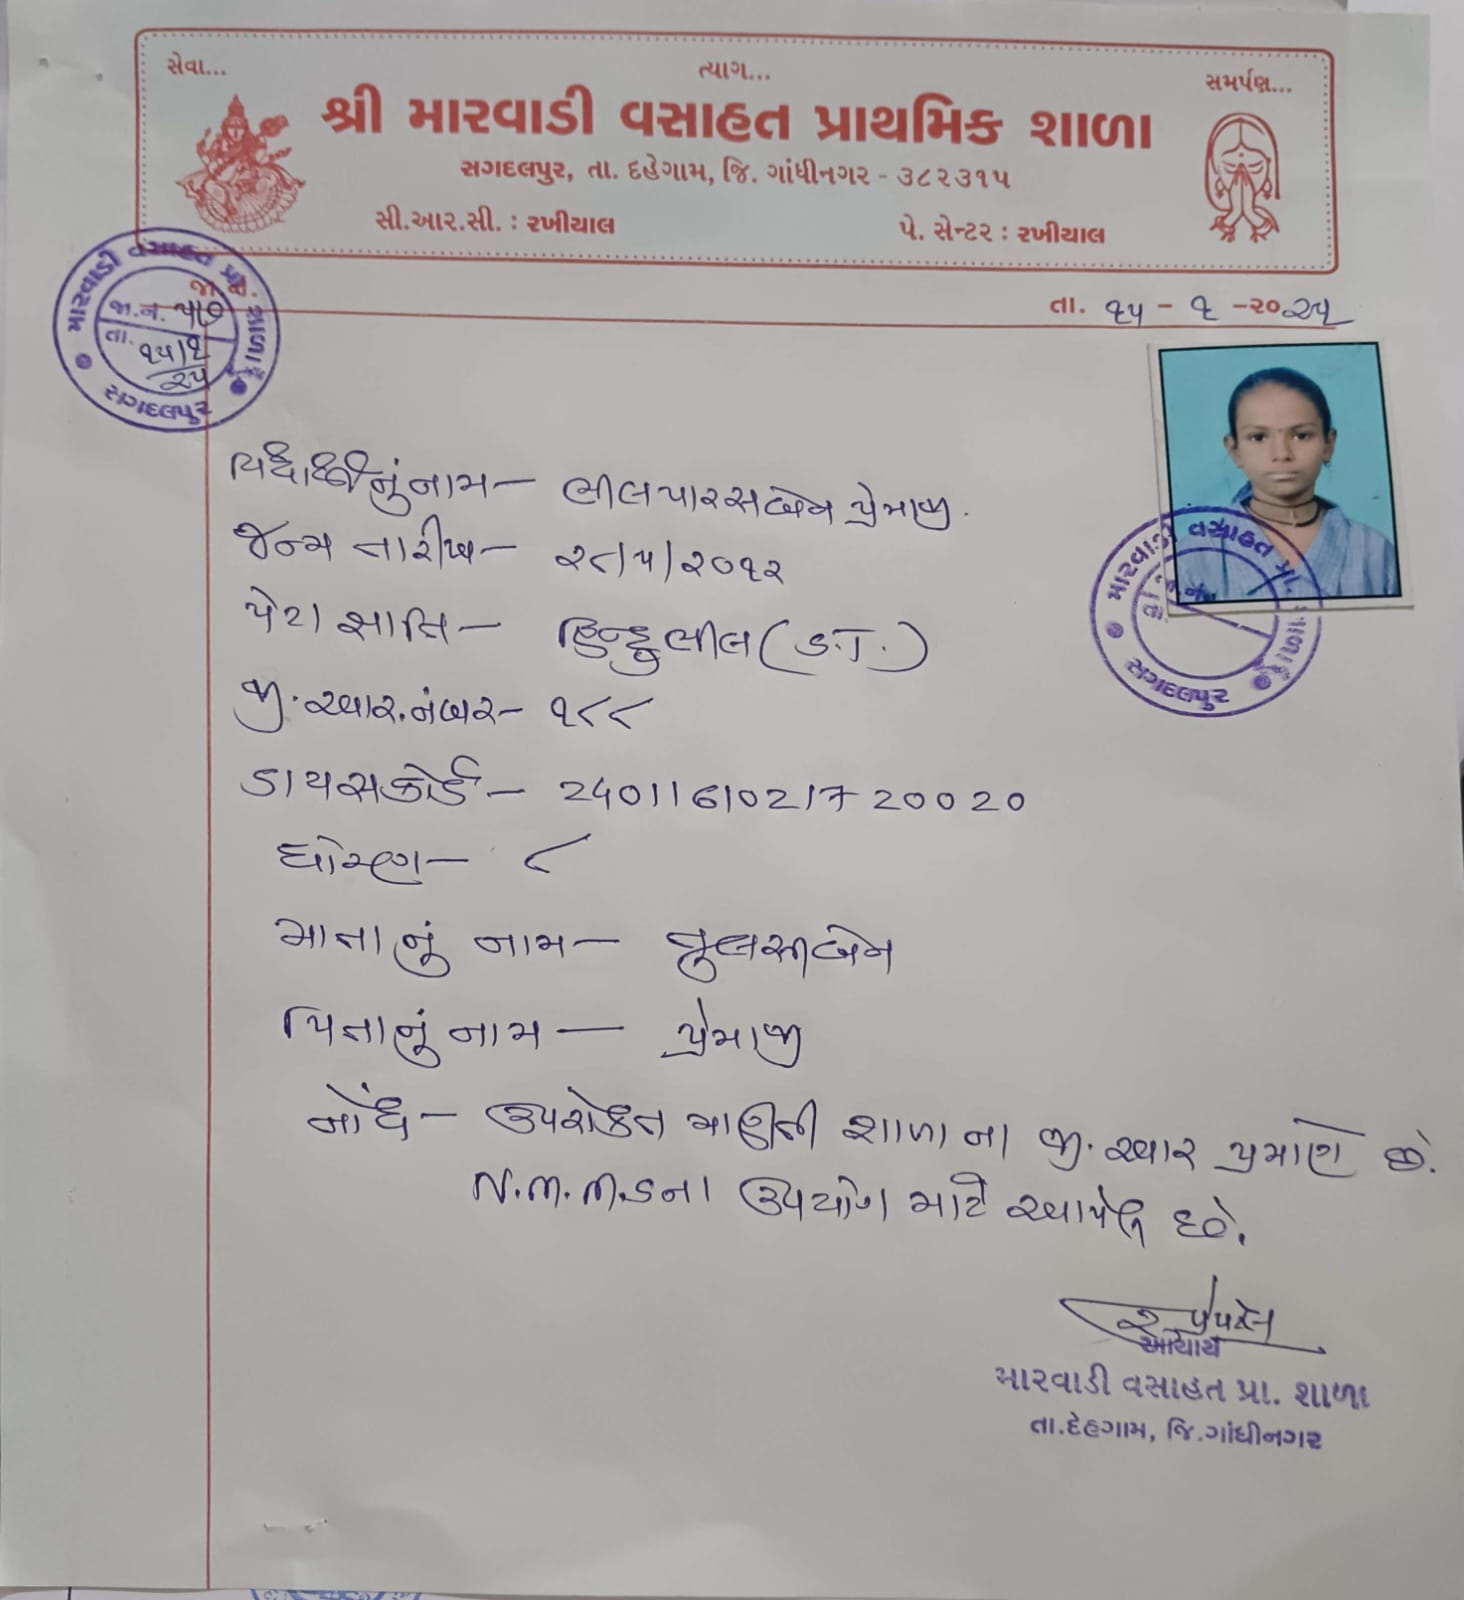 સેવા... ત્યાગ... સમર્પણ...
શ્રી મારવાડી વસાહત પ્રાથમિક શાળા
સગદલપુર, તા. દહેગામ, જિ. ગાંધીનગર - ૩૮૨૩૧૫
સી.આર.સી. : રખીયાલ પે. સેન્ટર : રખીયાલ
મારવાડી વસાહત પ્રા. શાળા
જા.નં.
તા. ૧૫/૧
૨૫
સગદલપુર
તા. ૧૫ - ૧ - ૨૦૨૫
વિદ્યાર્થીનું નામ - ભીલ પારસબેન પ્રેમાજી.
જન્મ તારીખ - ૨૮/૫/૨૦૧૨
પેટા જ્ઞાતિ - હિન્દુ ભીલ (S.T.)
જી.આર.નંબર - ૧૮૮
ડાયસકોર્ડ - 24011610217 20020
ધોરણ - ૮
માતાનું નામ - તુલસીબેન
પિતાનું નામ - પ્રેમાજી
નોંધ - ઉપરોકત માહિતી શાળાના જી.આર પ્રમાણે છે.
N.M.M.S ના ઉપયોગ માટે આપેલ છે.
મારવાડી વસાહત પ્રા. શાળા
સગદલપુર
આચાર્ય
મારવાડી વસાહત પ્રા. શાળા
તા.દેહગામ, જિ.ગાંધીનગર